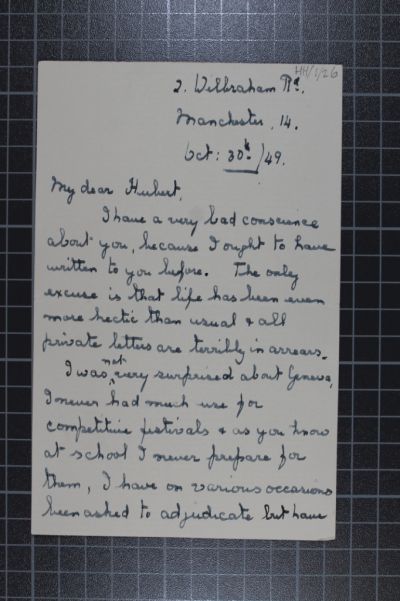 HH/1/26
2. Wilbraham Rd.
Manchester. 14.
Oct: 30th/49.
My dear Hubert,
I have a very bad conscience
about you, because I ought to have
written to you before. The only
excuse is that life has been even
more hectic than usual & all
private letters are terribly in arrears.
I was not very surprised about Geneva,
I never had much use for
competitive festivals & as you know
at school I never prepare for
them, I have on various occasions
been asked to adjudicate but have